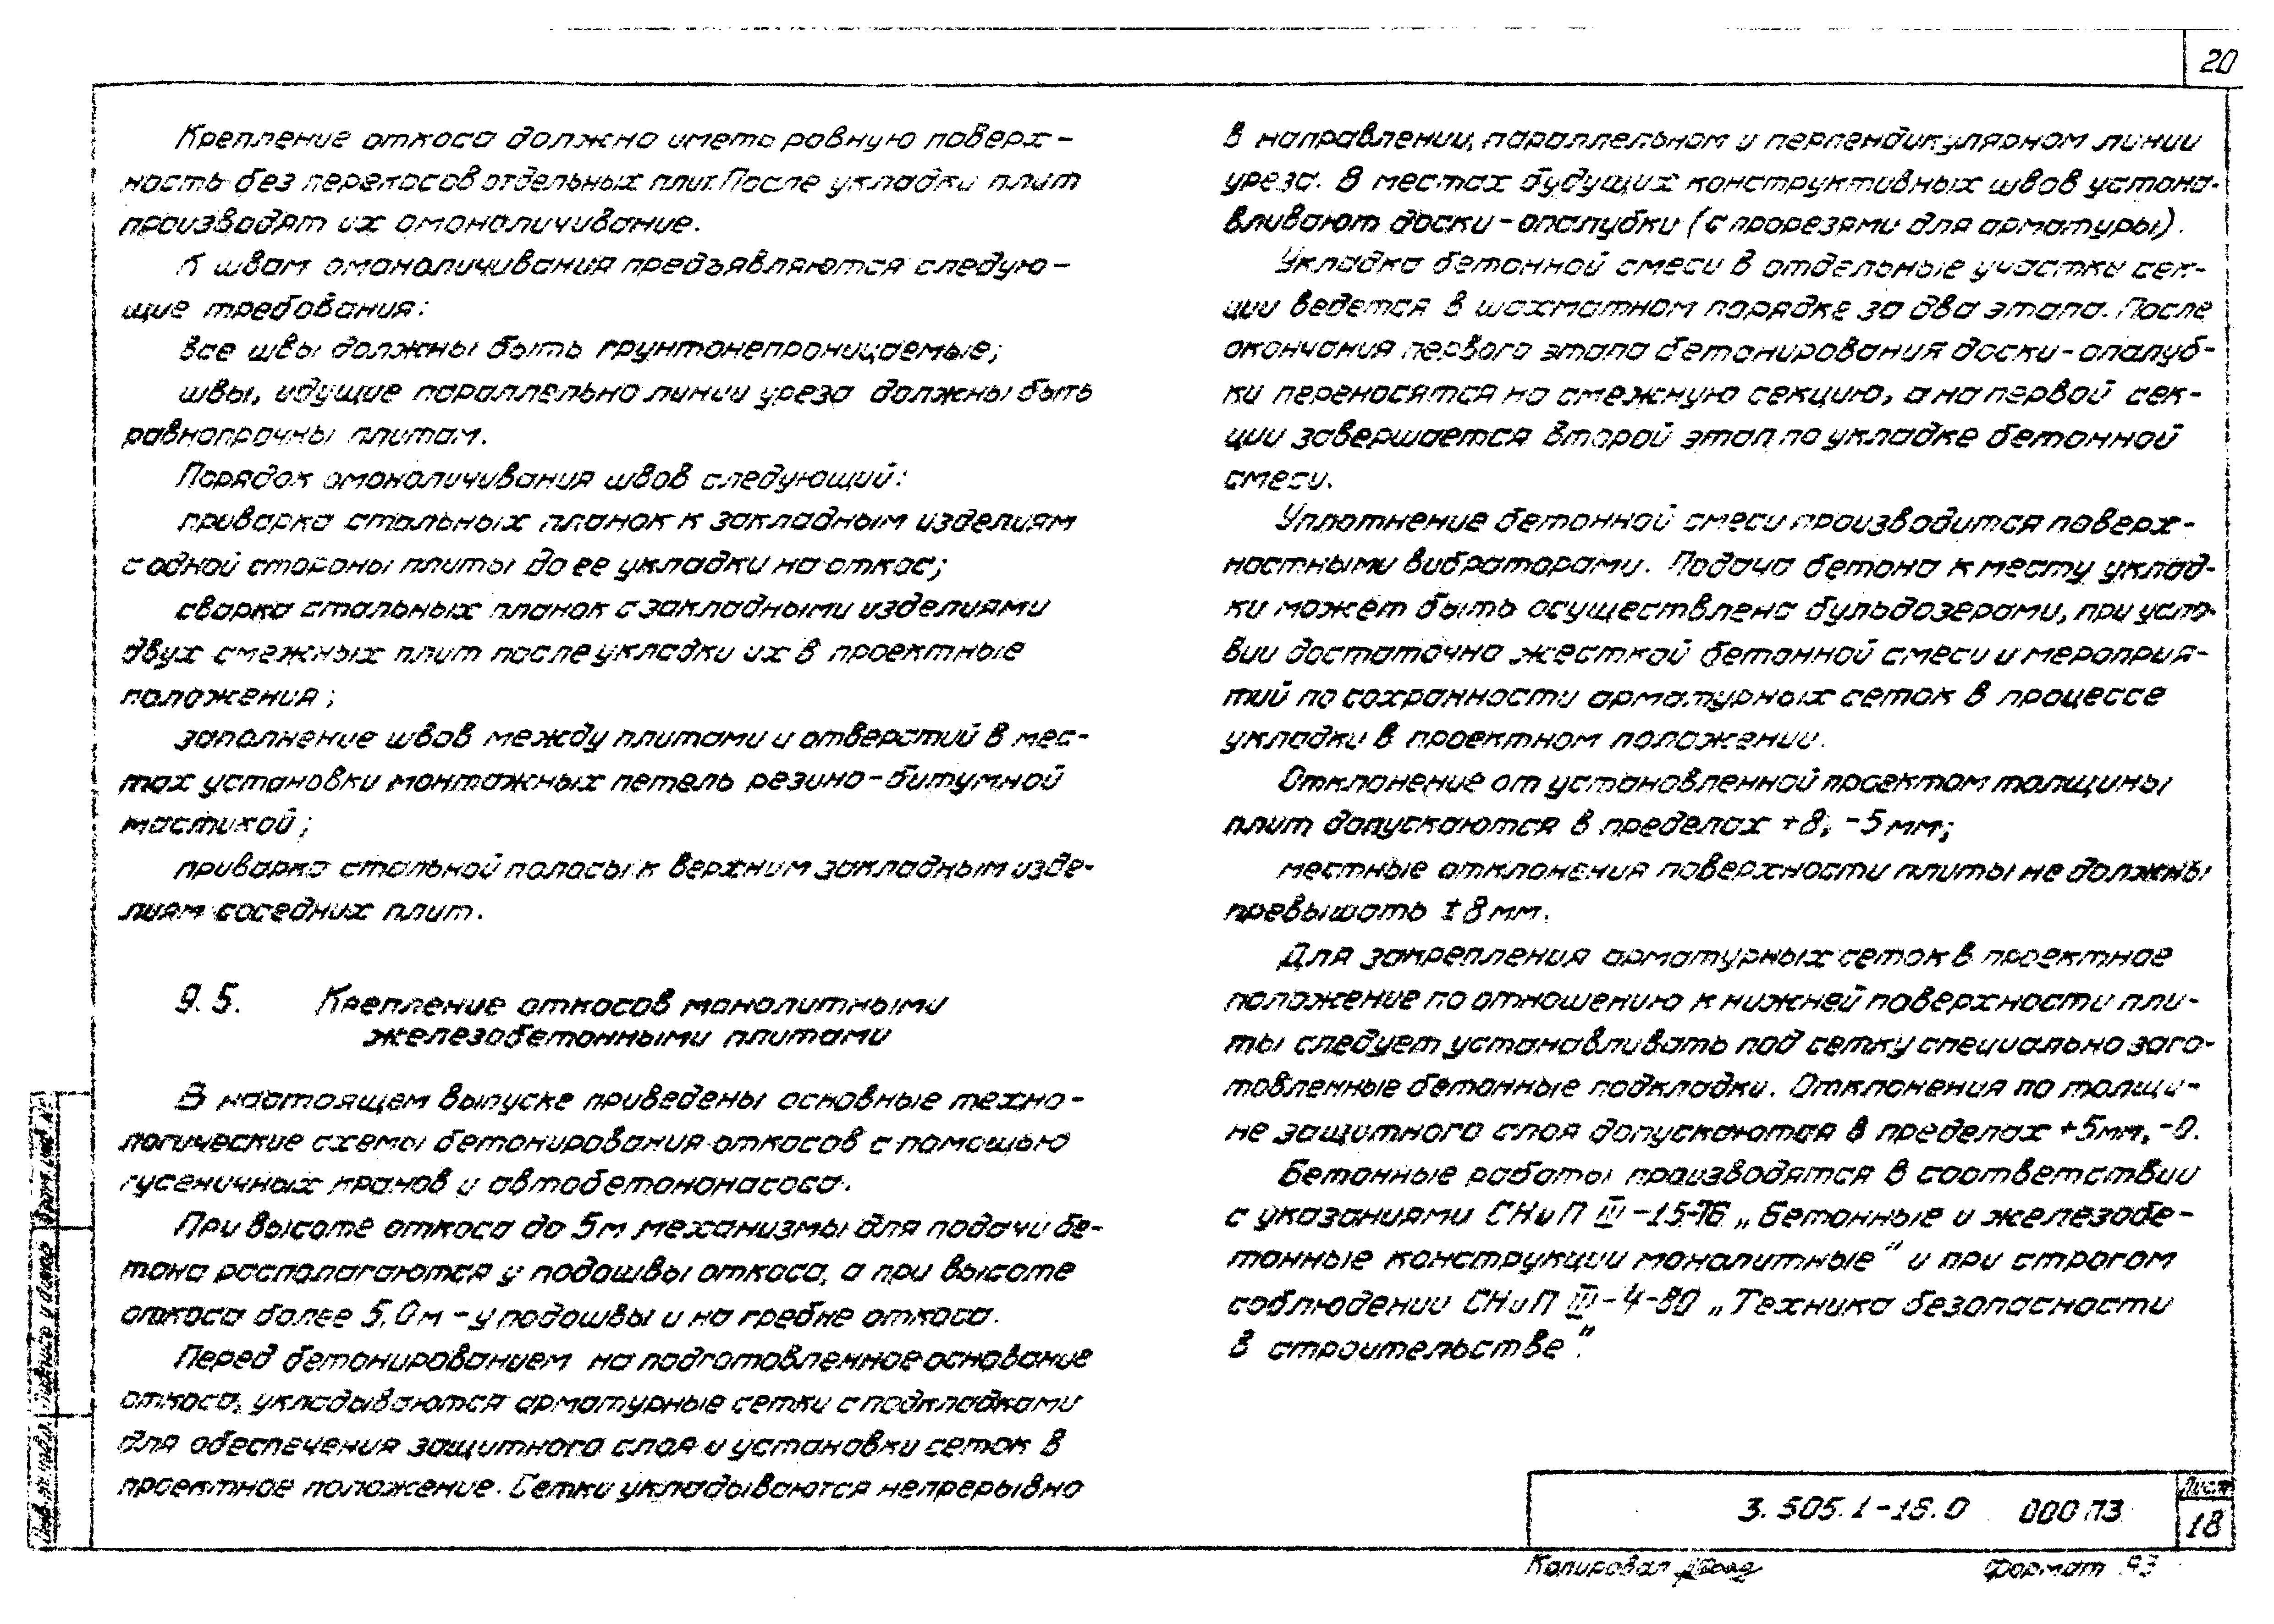 20
Крепление откоса должно иметь ровную поверх-
ность без перекосов отдельных плит. После укладки плит
производят их омоноличивание.
К швам омоноличивания предъявляются следую-
щие требования:
все швы должны быть грунтонепроницаемые;
швы, идущие параллельно линии уреза должны быть
равнопрочны плитам.
Порядок омоноличивания швов следующий:
приварка стальных планок к закладным изделиям
с одной стороны плиты до ее укладки на откос;
сварка стальных планок с закладными изделиями
двух смежных плит после укладки их в проектные
положения;
заполнение швов между плитами и отверстий в мес-
тах установки монтажных петель резино-битумной
мастикой;
приварка стальной полосы к верхним закладным изде-
лиям соседних плит.
9.5. Крепление откосов монолитными
железобетонными плитами
В настоящем выпуске приведены основные техно-
логические схемы бетонирования откосов с помощью
гусеничных кранов и автобетононасоса.
При высоте откоса до 5м механизмы для подачи бе-
тона располагаются у подошвы откоса, а при высоте
откоса более 5,0м - у подошвы и на гребне откоса.
Перед бетонированием на подготовленное основание
откоса, укладываются арматурные сетки с подкладками
для обеспечения защитного слоя и установки сеток в
проектное положение. Сетки укладываются непрерывно
в направлении, параллельном и перпендикулярном линии
уреза. В местах будущих конструктивных швов устана-
вливают доски-опалубки (с прорезями для арматуры).
Укладка бетонной смеси в отдельные участки сек-
ции ведется в шахматном порядке за два этапа. После
окончания первого этапа бетонирования доски-опалуб-
ки переносятся на смежную секцию, а на первой сек-
ции завершается второй этап по укладке бетонной
смеси.
Уплотнение бетонной смеси производится поверх-
ностными вибраторами. Подача бетона к месту уклад-
ки может быть осуществлена бульдозерами, при усло-
вии достаточно жесткой бетонной смеси и мероприя-
тий по сохранности арматурных сеток в процессе
укладки в проектном положении.
Отклонение от установленной проектом толщины
плит допускаются в пределах +8, -5мм;
местные отклонения поверхности плиты не должны
превышать ±8мм.
Для закрепления арматурных сеток в проектное
положение по отношению к нижней поверхности пли-
ты следует устанавливать под сетку специально заго-
товленные бетонные подкладки. Отклонения по толщи-
не защитного слоя допускаются в пределах +5мм, -0.
Бетонные работы производятся в соответствии
с указаниями СНиП III-15-76 „Бетонные и железобе-
тонные конструкции монолитные" и при строгом
соблюдении СНиП III-4-80 „Техника безопасности
в строительстве".
Инв. № подл. Подпись и дата Взам. инв. №
3.505.1-18.0 000 ПЗ
Лист
18
Копировал
Формат А3